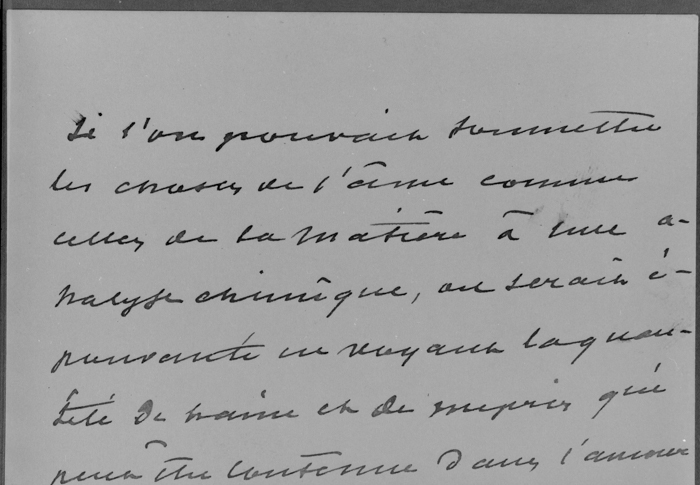 Si l'on pouvait soumettre
les choses de l'âme comme
celles de la matière à une a-
nalyse chimique, on serait é-
pouvanté en voyant la quan-
tité de haine et de mépris qui
peut être contenue dans l'amour